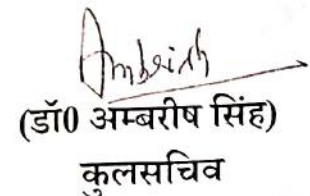 Ambrish
(डॉ0 अम्बरीष सिंह)
कुलसचिव